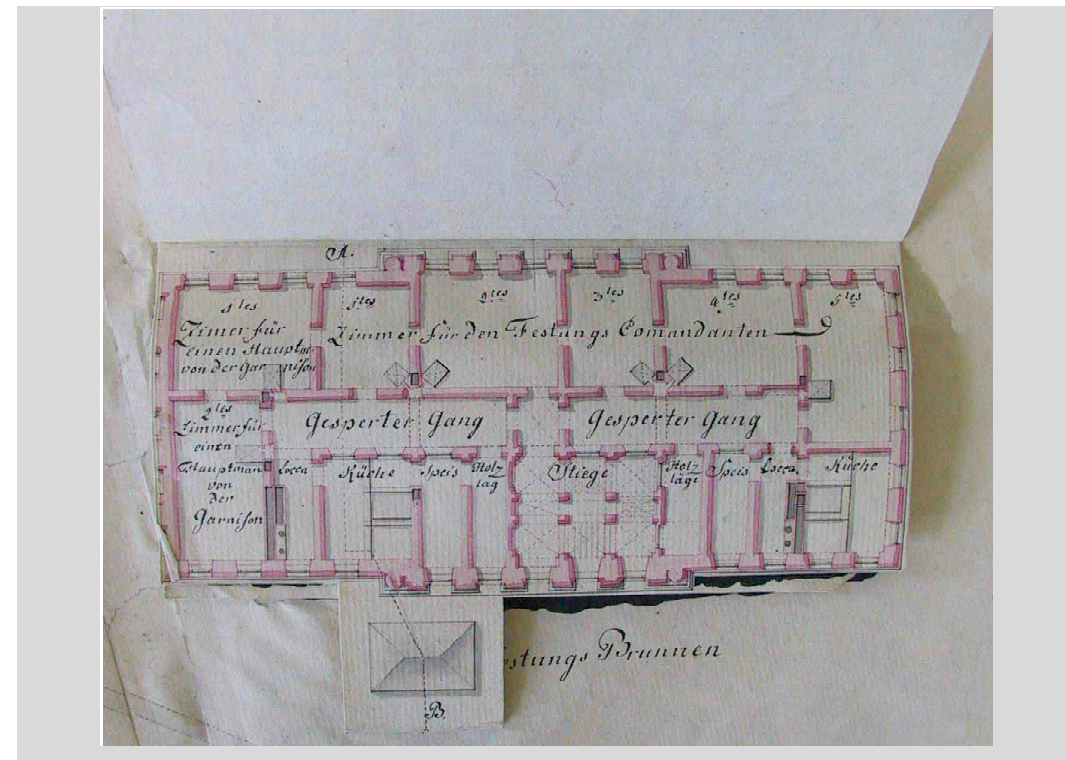 A.
1tes
1tes
2tes
3tes
4tes
5tes
Zimer für
einen Hauptm
von der Garnison
Zimmer für den Festungs Comandanten
2tes
Zimmer für
einen
Hauptman
von
der
Garnison
Gesperter Gang
Gesperter Gang
Locca
Küche
Speis
Holz
lag
Stiege
Holz
lage
Speis
Locca
Küche
estungs Brunnen
B.